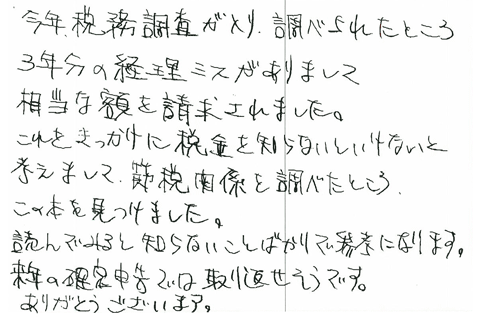 今年、税務調査が入り、調べられたところ
3年分の経理ミスがありまして
相当な額を請求されました。
これをきっかけに税金を知らないといけないと
考えまして、節税関係を調べたところ、
この本を見つけました。
読んでみると知らないことばかりで参考になります。
来年の確定申告では取り返せそうです。
ありがとうございます。